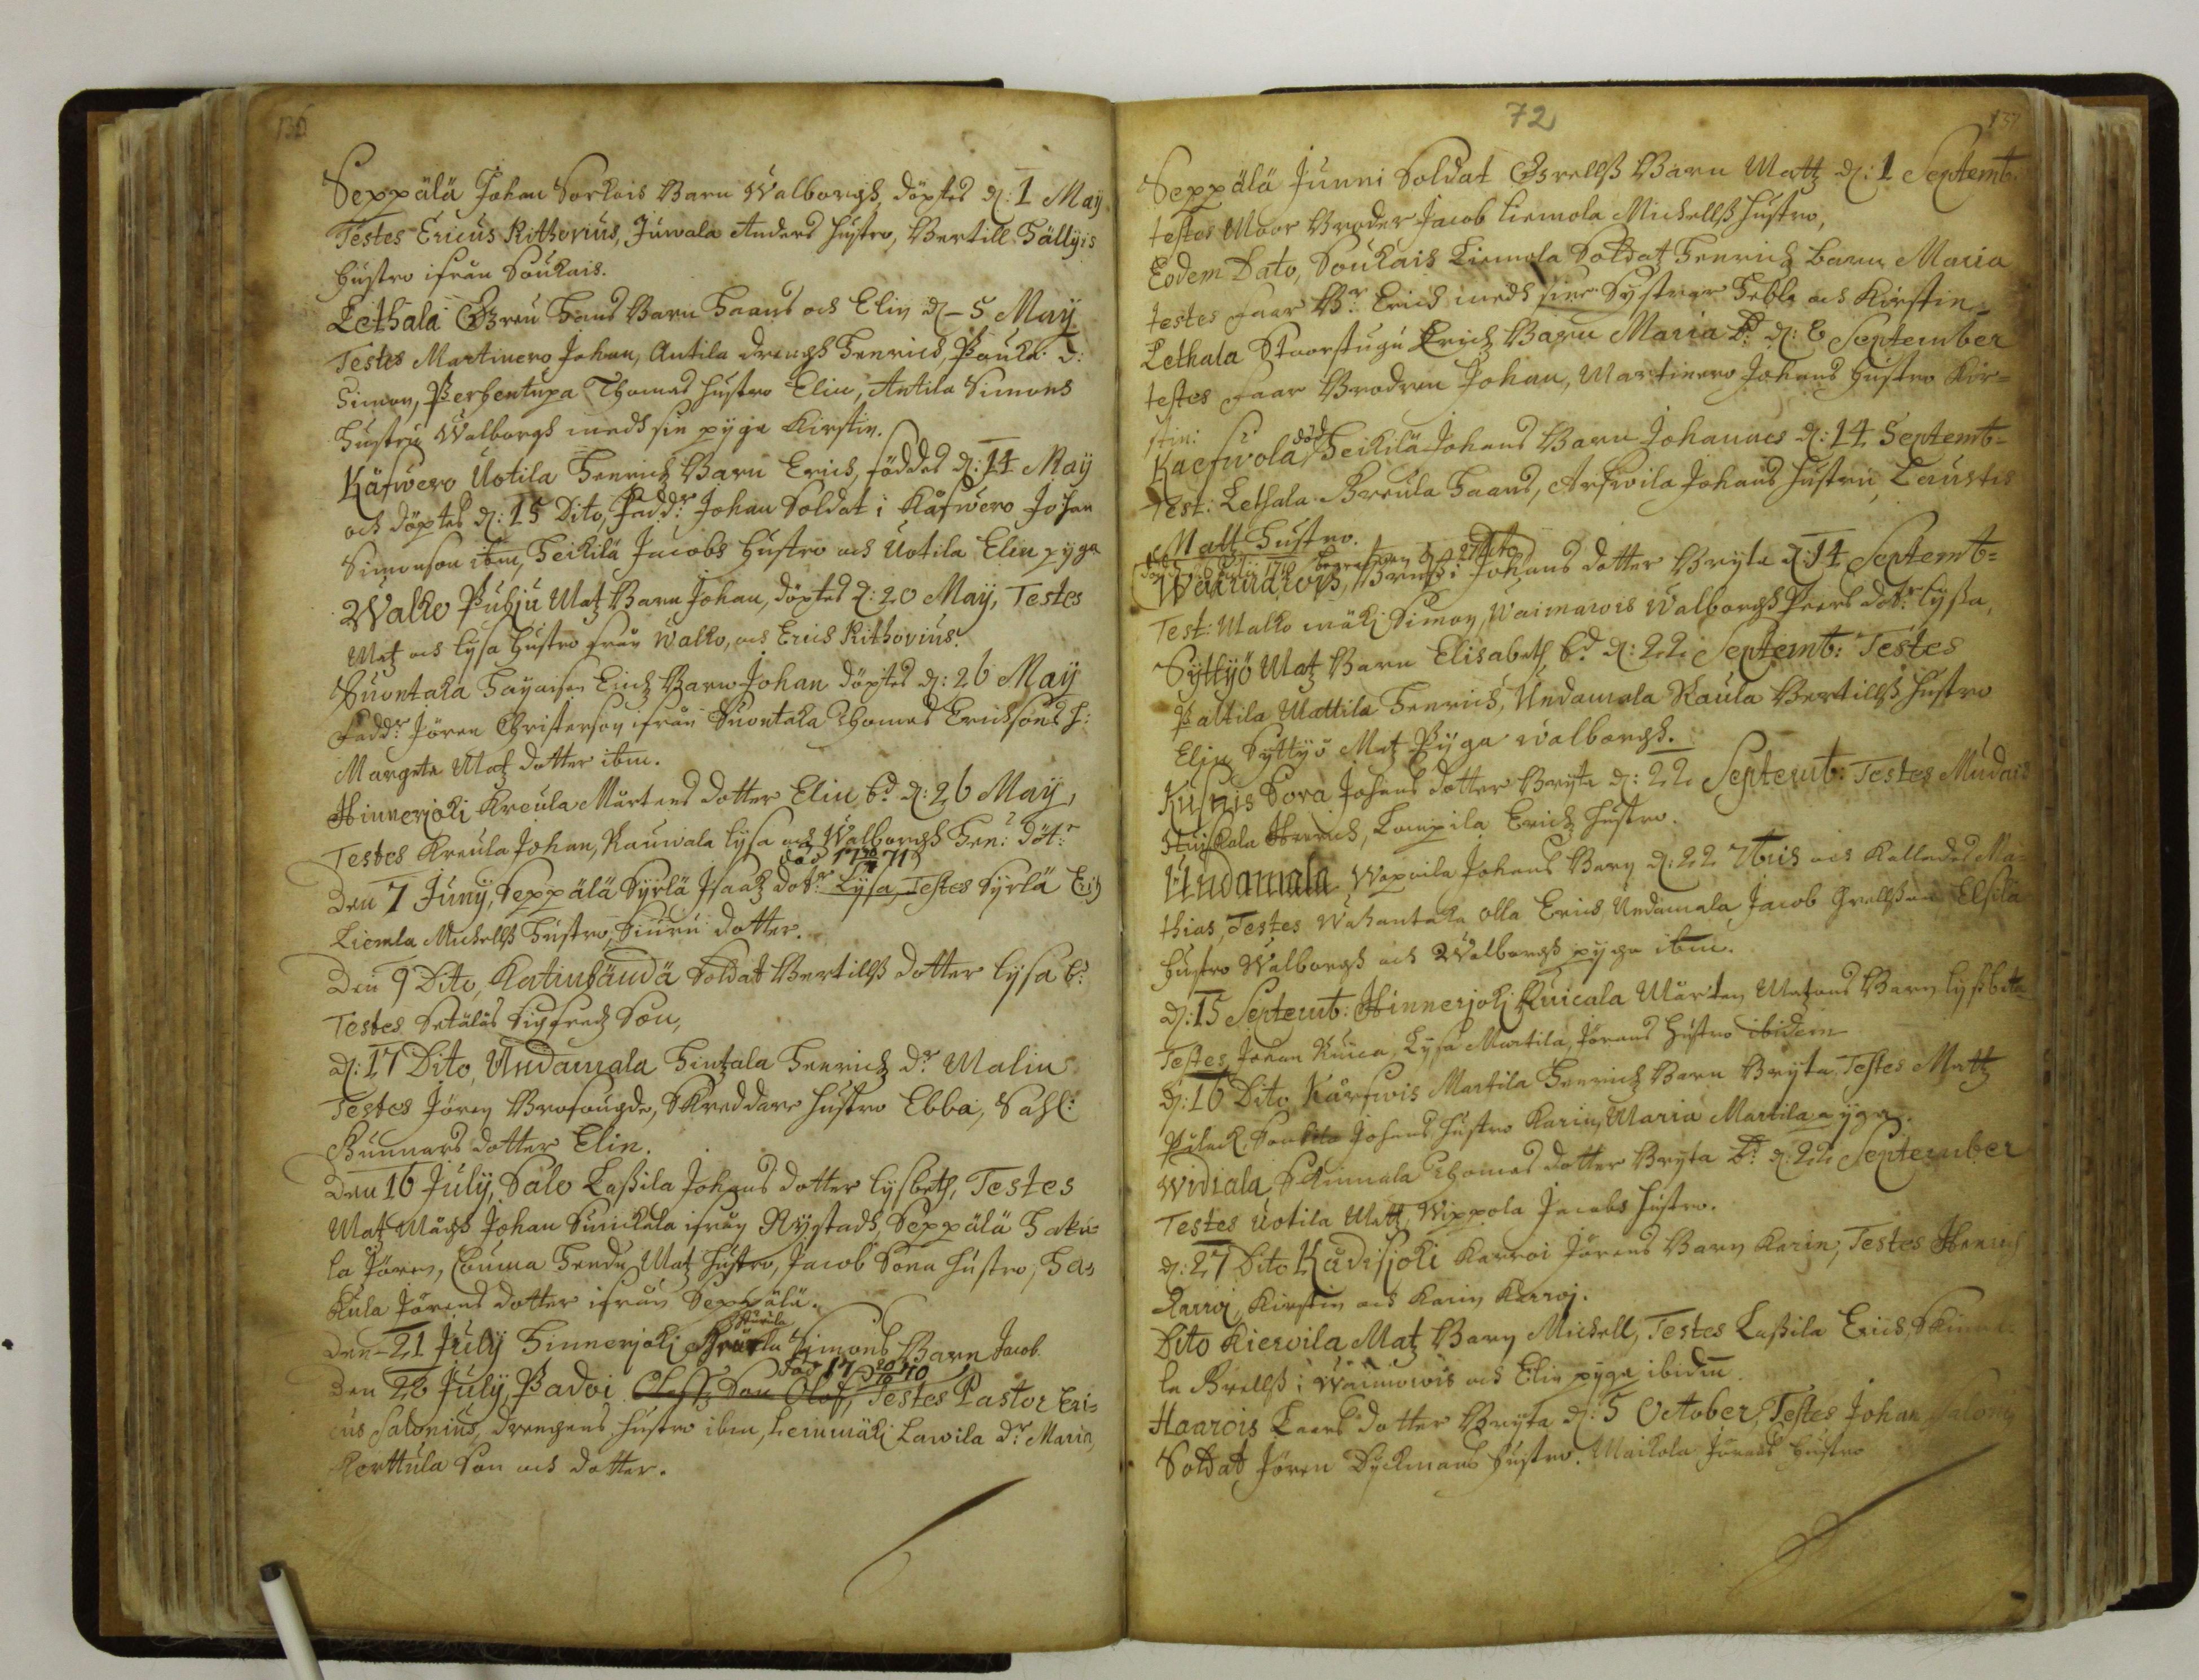 136
Seppälä Johan Sorkois Barn Walborgh, döptes d: 1 May
Testes Ericus Rithovius, Juwala Anders hustro, Bertill Hällÿis
hustro ifrån Soukais.
Lethala Breu Hans Barn Haans och Elin d – 5 Maÿ
Testes Martinero Johan, Antila drengh Henrich, Pauka d:
Simon, Perhentupa Thomas hustro Elin, Antila Simons
Hustru Walborgh medh sin pyga Kirstin.
Käfwero Uotila Henrich Barn Erich, föddes d: 14 Maÿ
och döptes d: 15 Dito, Fadd:r Johan Soldat i Käfwero Johan
Simonson ibm, Heikilä Jacobs Hustro och Uotila Elin pyga
Walko Puhju Matz Barn Johan, döptes d: 20 Maÿ, Testes
Matz och Lysa hustro från Walko, och Erich Rithovius.
Suontaka Erich Barn Johan döptes d: 26 Maÿ
Fadd:r Jören Christerson ifrån Suontaka Thomas Erichsons h:
Margeta Matz dotter ibm.
Hinnerjoki Kreula Mårtens dotter Elin b:d d: 26 Maÿ,
Testes Kreula Johan, Kauwala Lysa och Walborgh Hen: dot:r
död 17 30/4 71
Den 7 Junÿ, Seppälä Sÿrlä Isaach dot:r Lysa, Testes Sÿrlä Erich
Liemla Michells Hustro, Siuru dotter.
Den 9 Dito, Katinhändä Soldat Bertills dotter Lysa b:d
Testes Setäläs Sigfredh Son,
d: 17 Dito, Undamala Hintzala Henrich d:r Malin
Testes Jören Brofougde, Skreddare hustro Ebba, Sahl:
Gunnars dotter Elin.
Den 16 July, Salo Laßila Johans dotter Lysbeth, Testes
Matz Mågh Johan Suikkala ifrån Nystadh, Seppälä Haku=
la Jören, Launa Matz hustro, Jacob Sonu hustro, Ha=
kula Jörens dotter ifrån Seppälä.
Den 21 July Hinnerjoki Simons Barn Jacob
död 17 20/10 70
Den 26 July, Padoi Oloffs Son Olof, Testes Pastor Eri=
cus Salonius, drengens hustro ibm, Leinmäki Lawila d:r Maria,
Kerttula Son och dotter.
72
137
Seppälä Junni Soldat Grells Barn Matz d: 1 Septemb:
testes Moor Broder Jacob Liemola Michells hustro,
Eodem Dato, Soukais Liemola Soldat Henrich barn Maria
testes Faar B:r Erich medh sine Systrar Hebla och Kirstin
Lethala Stoorstugu Erich Barn Maria b:d d: 8 September
testes Faar Brodren Johan, Martinero Johans hustro Kir=
stin:
Kaefwola död Heikilä Johans Barn Johannes d: 14 Septemb=
Test: Lethala Kreula Haans, Arfwila Johans hustru, Laustis
Matz Hustro.
begrafwen d 27 dito
Johans dotter Bryta d 14 Septemb=
Test: Walko mäki Simon, Waimarois Walborgh Peers dot:r Lysa,
Syttÿö Matz Barn Elisabeth b:d d: 22 Septemb: Testes
Paltila Mattila Henrich, Undamala Kaula Bertills hustro
Elin Syttÿö Matz Pyga Walborgh.
Kusnis Sora Johans dotter Bryta d: 22 Septemb: Testes Mudais
Henrich, Lampila Erich hustro.
Undamala Wepoila Johans Barn d: 22 7bris och kallades Ma=
thias, Testes Wahantaka Olla Erich, Undamala Jacob Grellson Elsilä
hustro Walborgh och Walborgh pyga ibm.
d: 15 Septemb: Hinnerjoki Kuicala Mårten Matzons Barn Lysbeta
Testes Johan Kuica, Lysa Martila, Jörans hustro ibidem
d: 16 Dito Karfwis Martila Henrich Barn Bryta Testes Matz
Johans hustro Karin, Maria Martila pyga.
Widiala Skinnala Thomas dotter Bryta b:d d: 22 September
Testes Uotila Matz Wippola Jacobs hustro.
d: 27 Dito Kådisjoki Karroi Jörens Barn Karin, Testes Henrich
Karroi, Kirstin och Karin Karroj.
Dito Kieroila Matz Barn Michell, Testes Laßila Erich, Skinna=
la Brells i Waimorois och Elin pyga ibidm.
Haarois Lars dotter Bryta d: 5 October, Testes Johan Saloni
Soldat Jören Dyckmans hustro, Maikola Jörans hustro